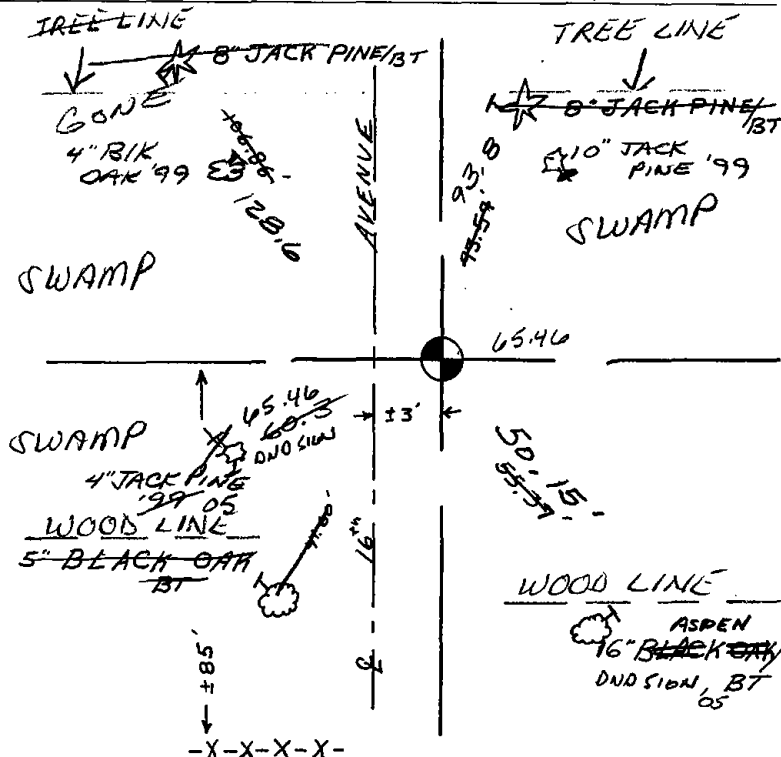 TREE LINE
8" JACK PINE/BT
GONE
4" BLK
OAK '99
106.86
128.6
SWAMP
TREE LINE
8" JACK PINE/
BT
10" JACK
PINE '99
93.8
SWAMP
AVENUE
65.46
±3'
SWAMP
65.46
60.3
DND SIGN
4" JACK PINE
'99 05
WOOD LINE
5" BLACK OAK
BT
16th
℄
±85'
-X-X-X-X-
50.15
55.37
WOOD LINE
ASPEN
16" BLACK OAK/
DND SIGN, BT
05